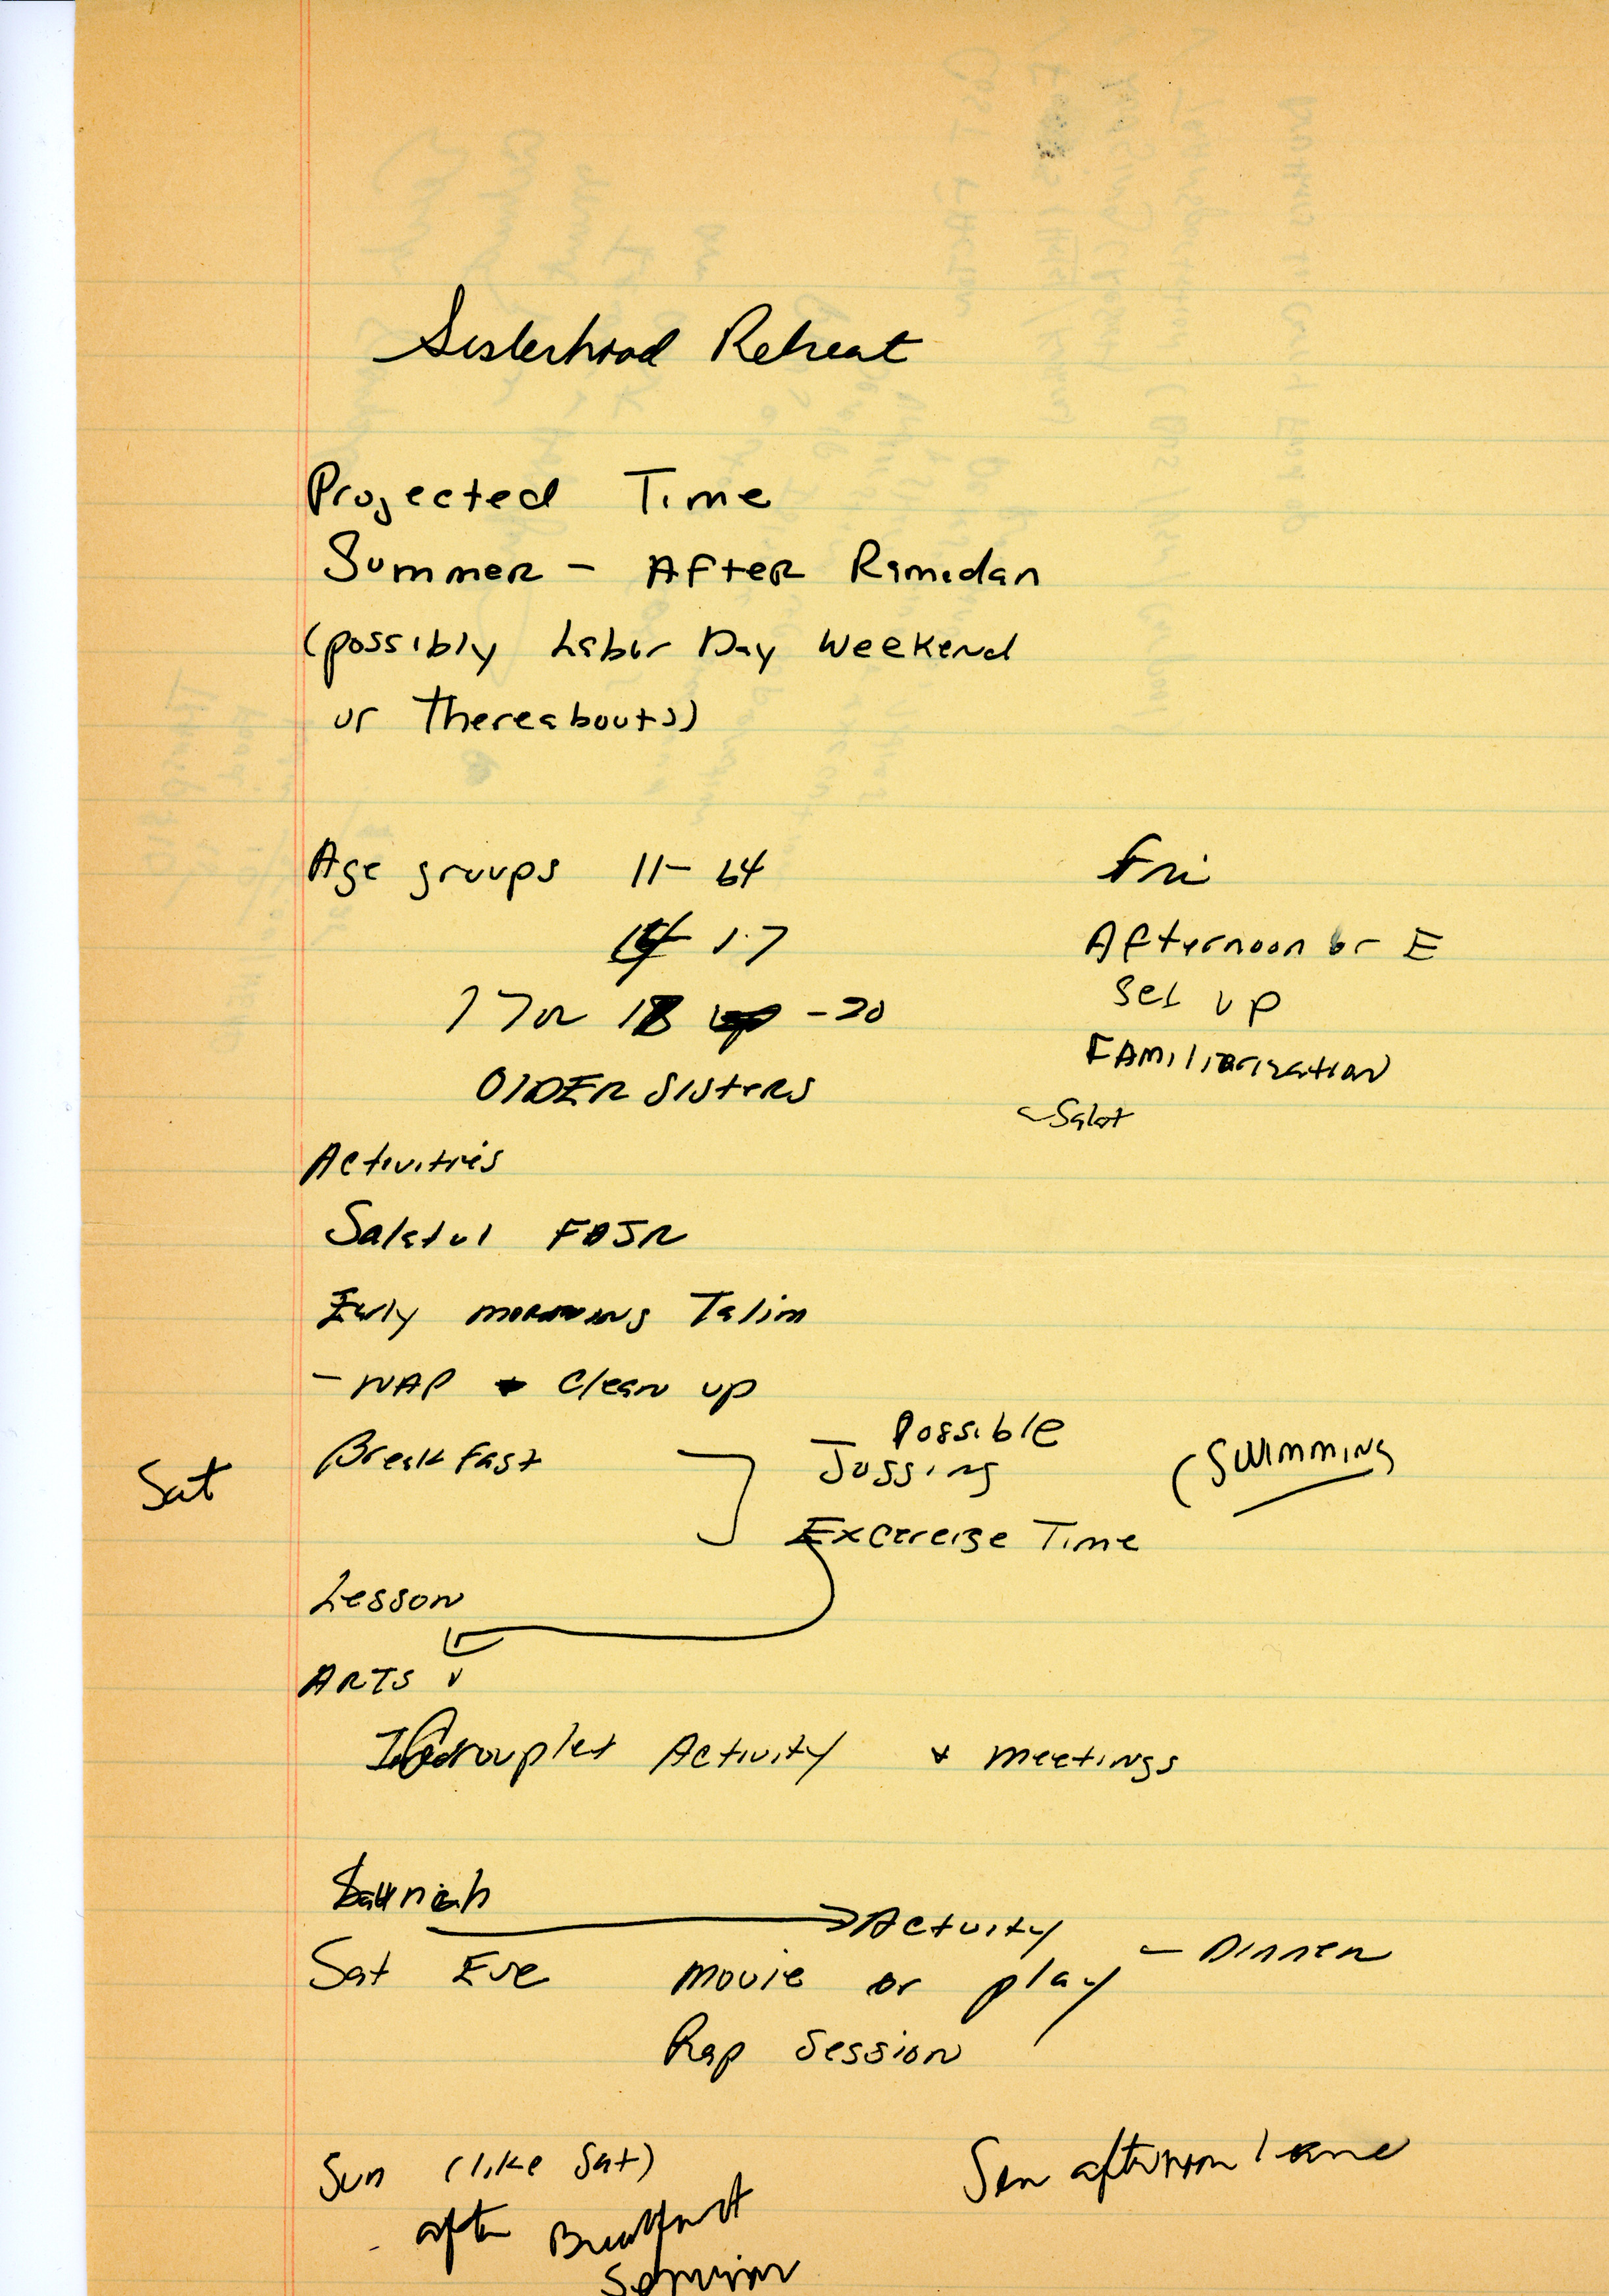 Sisterhood Retreat
Projected Time
Summer - After Ramadan
(possibly Labor Day Weekend
or Thereabouts)
Age groups 11-14
17
17 or 18 -20
OlDER SisteRS
Fri
Afternoon or E
Set up
FAmiliarization
- Salat
Activities
Salatul FAJR
Early morning Talim
- NAP + Clean up
Sat
Breakfast
Possible
Jogging
(Swimming
Excercise Time
Lesson
ARTS
Activity + meetings
Activity
Sat Eve movie or play - Dinner
Rap Session
Sun (like Sat)
Sun afternoon leave
after Breakfast
Seminar